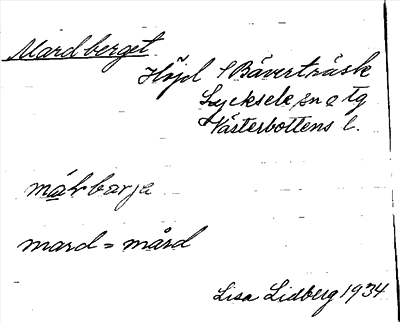 Mardberget
Höjd i Bäverträsk
Lycksele sn o tg
Västerbottens l.
márbarja
mard = mård
Lisa Lidberg 1934